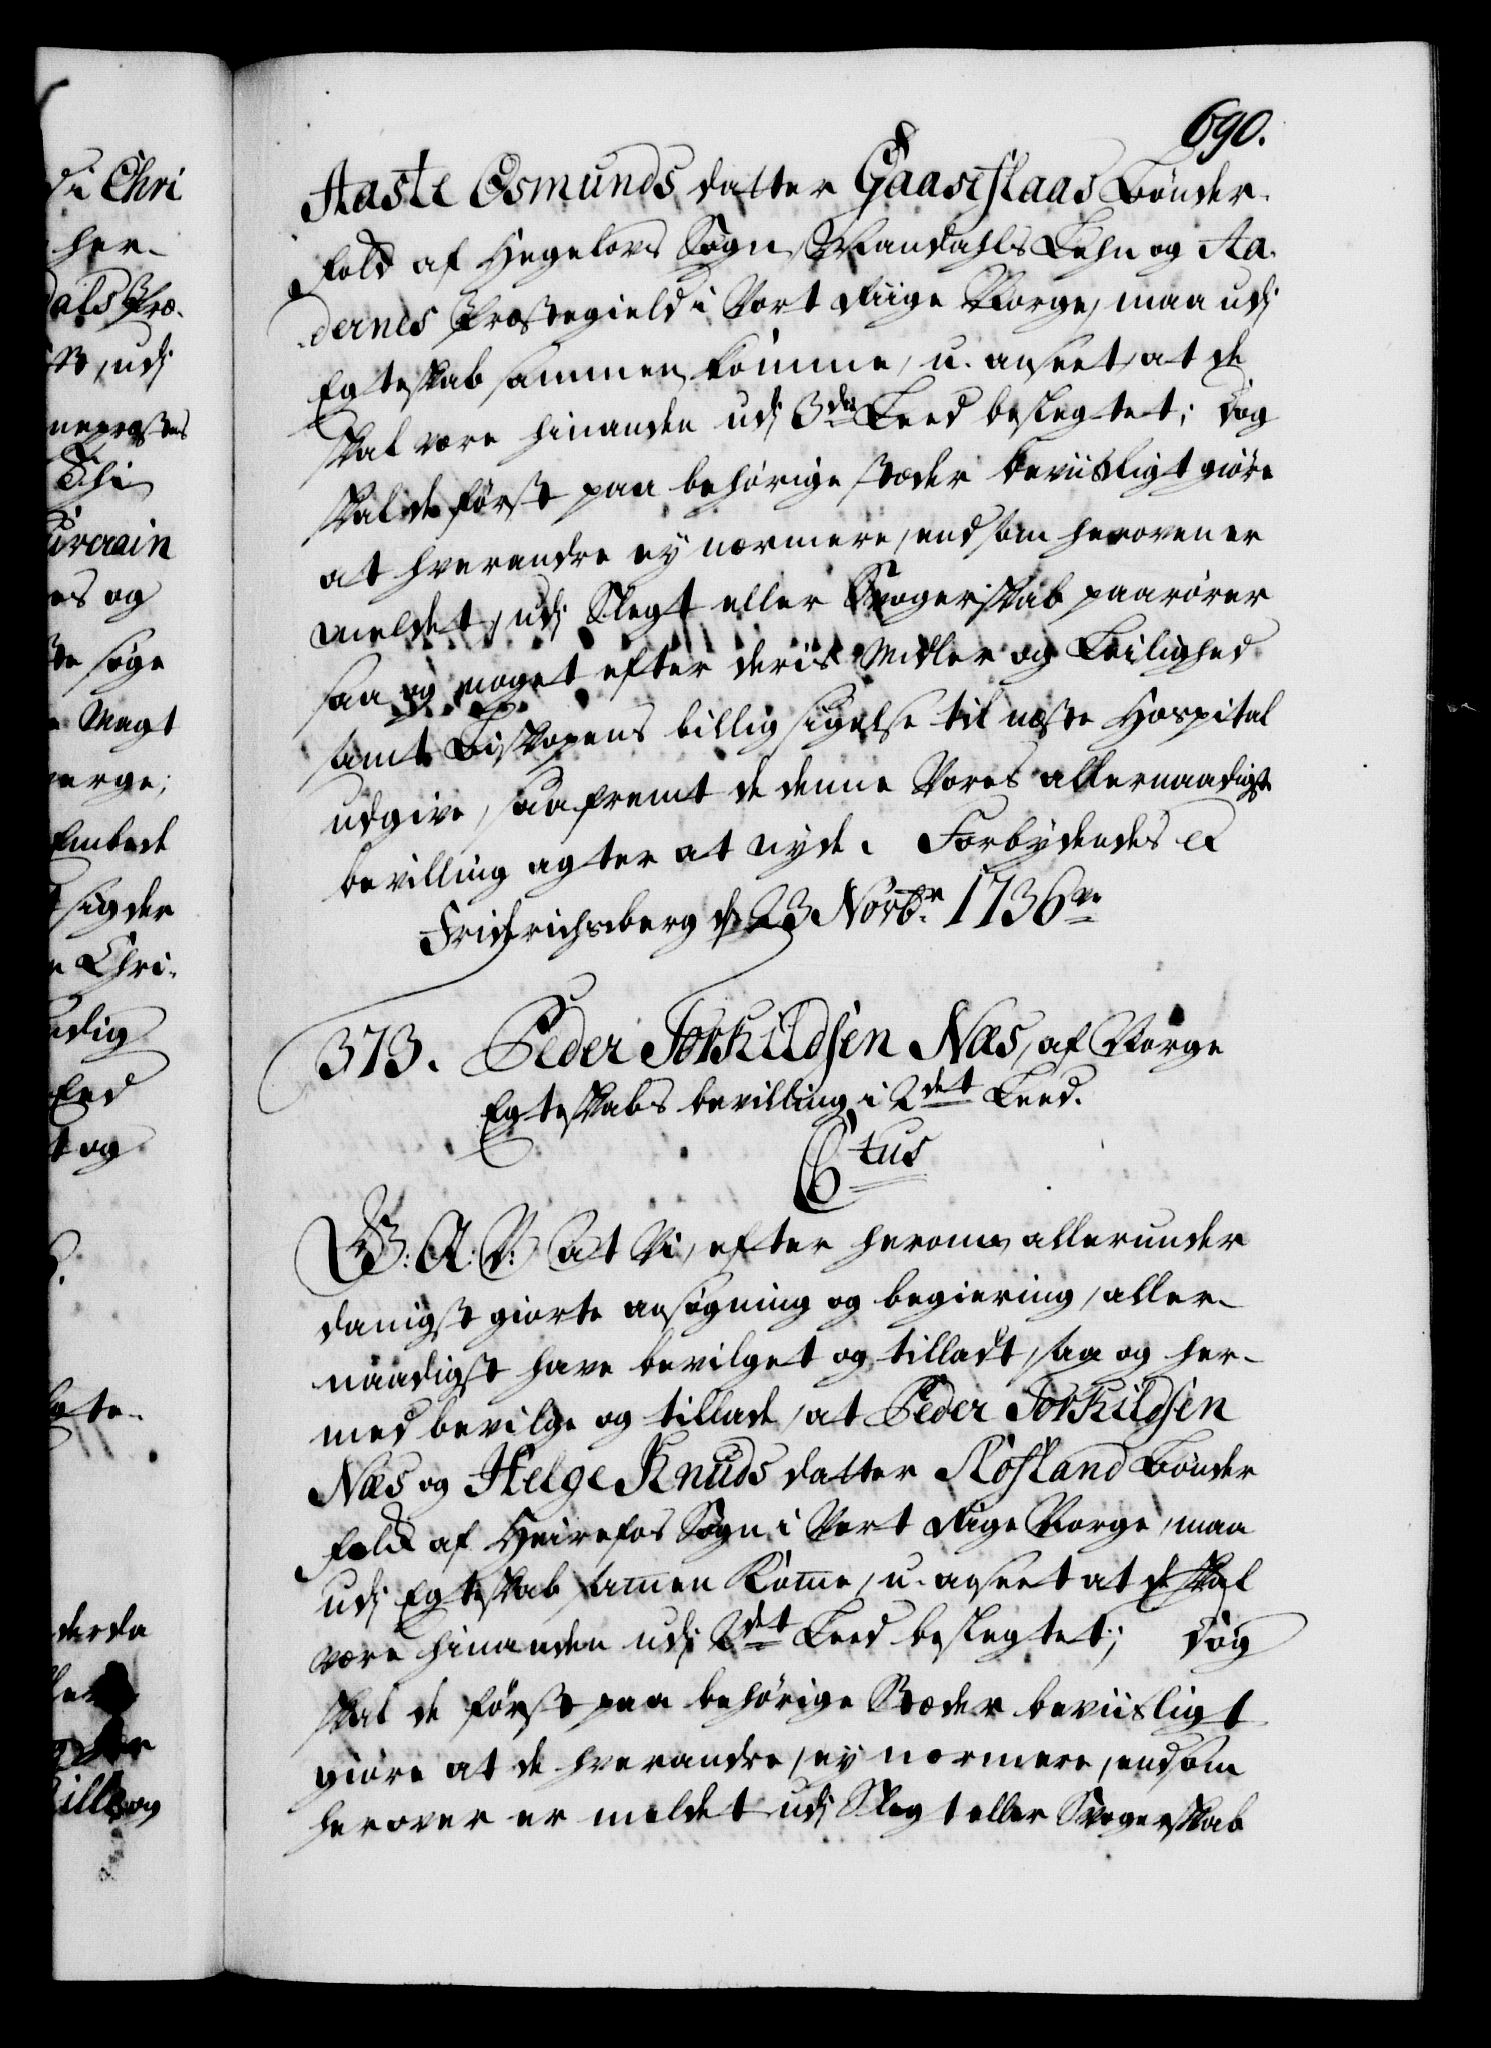 690.
Aaste Osmunds datter Gaaseflaas Bønder-
folck af Hegelovs Sogn, Mandahls Lehn og Aa-
dernes Præstegield i Vort Riige Norge, maa udj
Egteskab sammen komme, u-anseet, at de
skal være hinanden udj 3die Leed beslegtet; Dog
skal de først paa behørige stæder beviisligt giøre
at hverandre ey nærmere, end som herover er
meldet, udj Slegt eller Svogerskab paarører
saa og noget efter deris Midler og Leilighed
samt Biskopens billig sigelse til næste Hospital
udgive, saafremt de denne Vores allernaadigste
bevilling agter at nyde. Forbydendes etc
Friderichsberg d. 23 Novbr. 1736.
373. Peder Torkildsen Næs, af Norge
Egteskabs bevilling i 2det Leed.
Ctus
G: A: V: At Vi, efter herom allerunder
danigst giorte ansøgning og begiering, aller-
naadigst have bevilget og tilladt, saa og her-
med bevilge og tillade, at Peder Torkildsen
Næs og Helge Knuds datter Røsland Bønder
folck af Heirefos Sogn i Vort Rige Norge, maa
udj Egteskab samen Kome, u-anseet at de skal
være hinanden udj 2det Leed beslegtet; Dog
skal de først paa behørige Stæder beviisligt
giøre at de hverandre, ey nærmere, end som
herover er meldet udj Slegt eller Svogerskab